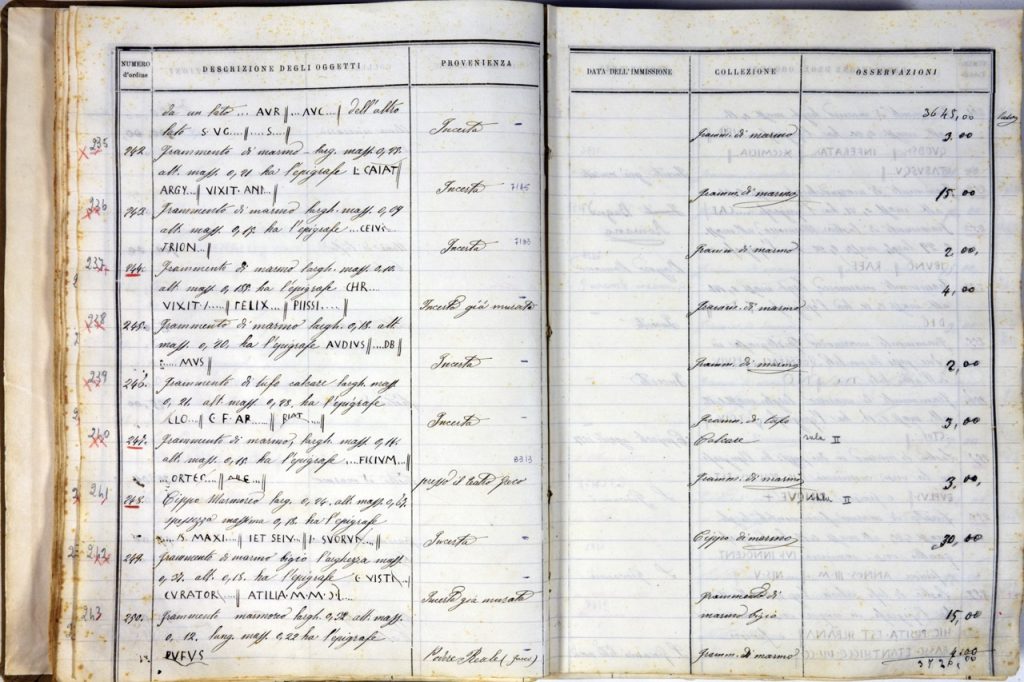 NUMERO d'ordine
DESCRIZIONE DEGLI OGGETTI
PROVENIENZA
da un lato ... AVR || ... AVC ... || dell'altro
lato S·VG... || ...S... ||
Incerta
235
242. Frammento di marmo larg. mass. 0,23.
alt. mass. 0,21 ha l'epigrafe L·CAIAT ||
ARGY... || VIXIT·ANI... ||
Incerta
236
243. Frammento di marmo largh. mass. 0,09
alt. mass. 0,15. ha l'epigrafe ... CEIVS
TRION... ||
Incerta
237
244. Frammento di marmo largh. mass. 0,10.
alt. mass. 0,155. ha l'epigrafe CHR.
VIXIT·... || FELIX... || PIISSI... ||
Incerta già murato
238
245. Frammento di marmo largh. 0,18. alt.
mass. 0,20. ha l'epigrafe AVDIVS || ... DB ||
... MVS ||
Incerta
239
246. Frammento di tufo calcare largh. mass.
0,21. alt. mass. 0,23. ha l'epigrafe
CLO... || C·F·AR... || RIAT... ||
Incerta
240
247. Frammento di marmo, largh. mass. 0,14.
alt. mass. 0,15. ha l'epigrafe ... FICIVM... ||
... ORTES... || ARE... ||
presso il teatro Greco
241
248. Cippo Marmoreo larg. 0,24. alt. mass. 0,43.
spessezza massima 0,18. ha l'epigrafe
... S. MAXI... || IET SEIV... || I·SVORVM... ||
Incerta
242
249. Frammento di marmo bigio larghezza mass.
0,27. alt. 0,15. ha l'epigrafe C·VISTI ||
CVRATOR || ATILIA·M·M·
Incerta già murato
243
250. Frammento marmoreo largh. 0,32 alt. mass.
0,12. lung. mass. 0,22 ha l'epigrafe
RVFVS
DATA DELL'IMMISSIONE
COLLEZIONE
OSSERVAZIONI
3645,00
Framm. di marmo
3.00
Framm. di marmo
15.00
Framm. di marmo
2,00
4,00
Framm. di marmo
Framm. di marmo
2,00
Framm. di tufo
3,00
Calcare
sala II
Framm. di marmo
3,00,
II
Cippo di marmo
30,00
Frammento di
marmo bigio
15,00
Framm. di marmo
4.00